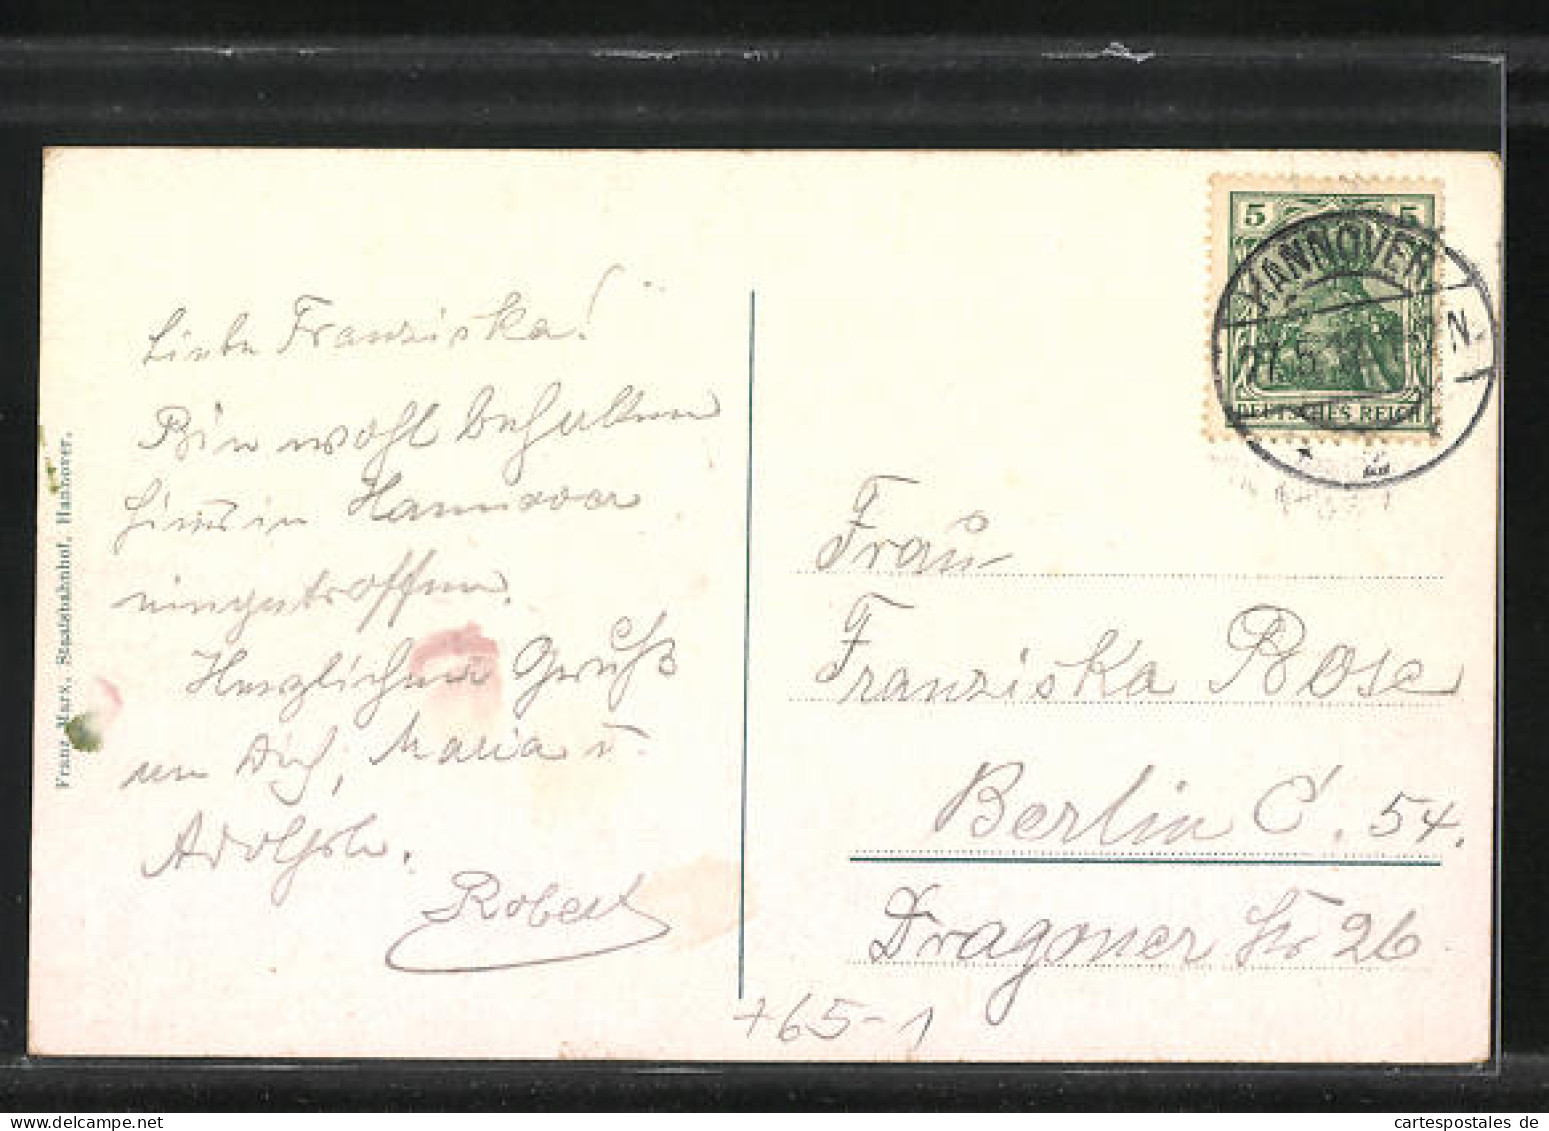 Liebe Franziska!
Bin wohl behalten
hier in Hannover
eingetroffen.
Herzlichen Gruß
an Dich, Maria u.
Adolfsh.
Robert
Franz Marx, Staatsbahnhof, Hannover.
5 5
DEUTSCHES REICH
HANNOVER
27.5. N.
* 2
Frau
Franziska Bose
Berlin C. 54.
Dragoner Str 26
+65-1
www.cartespostales.de